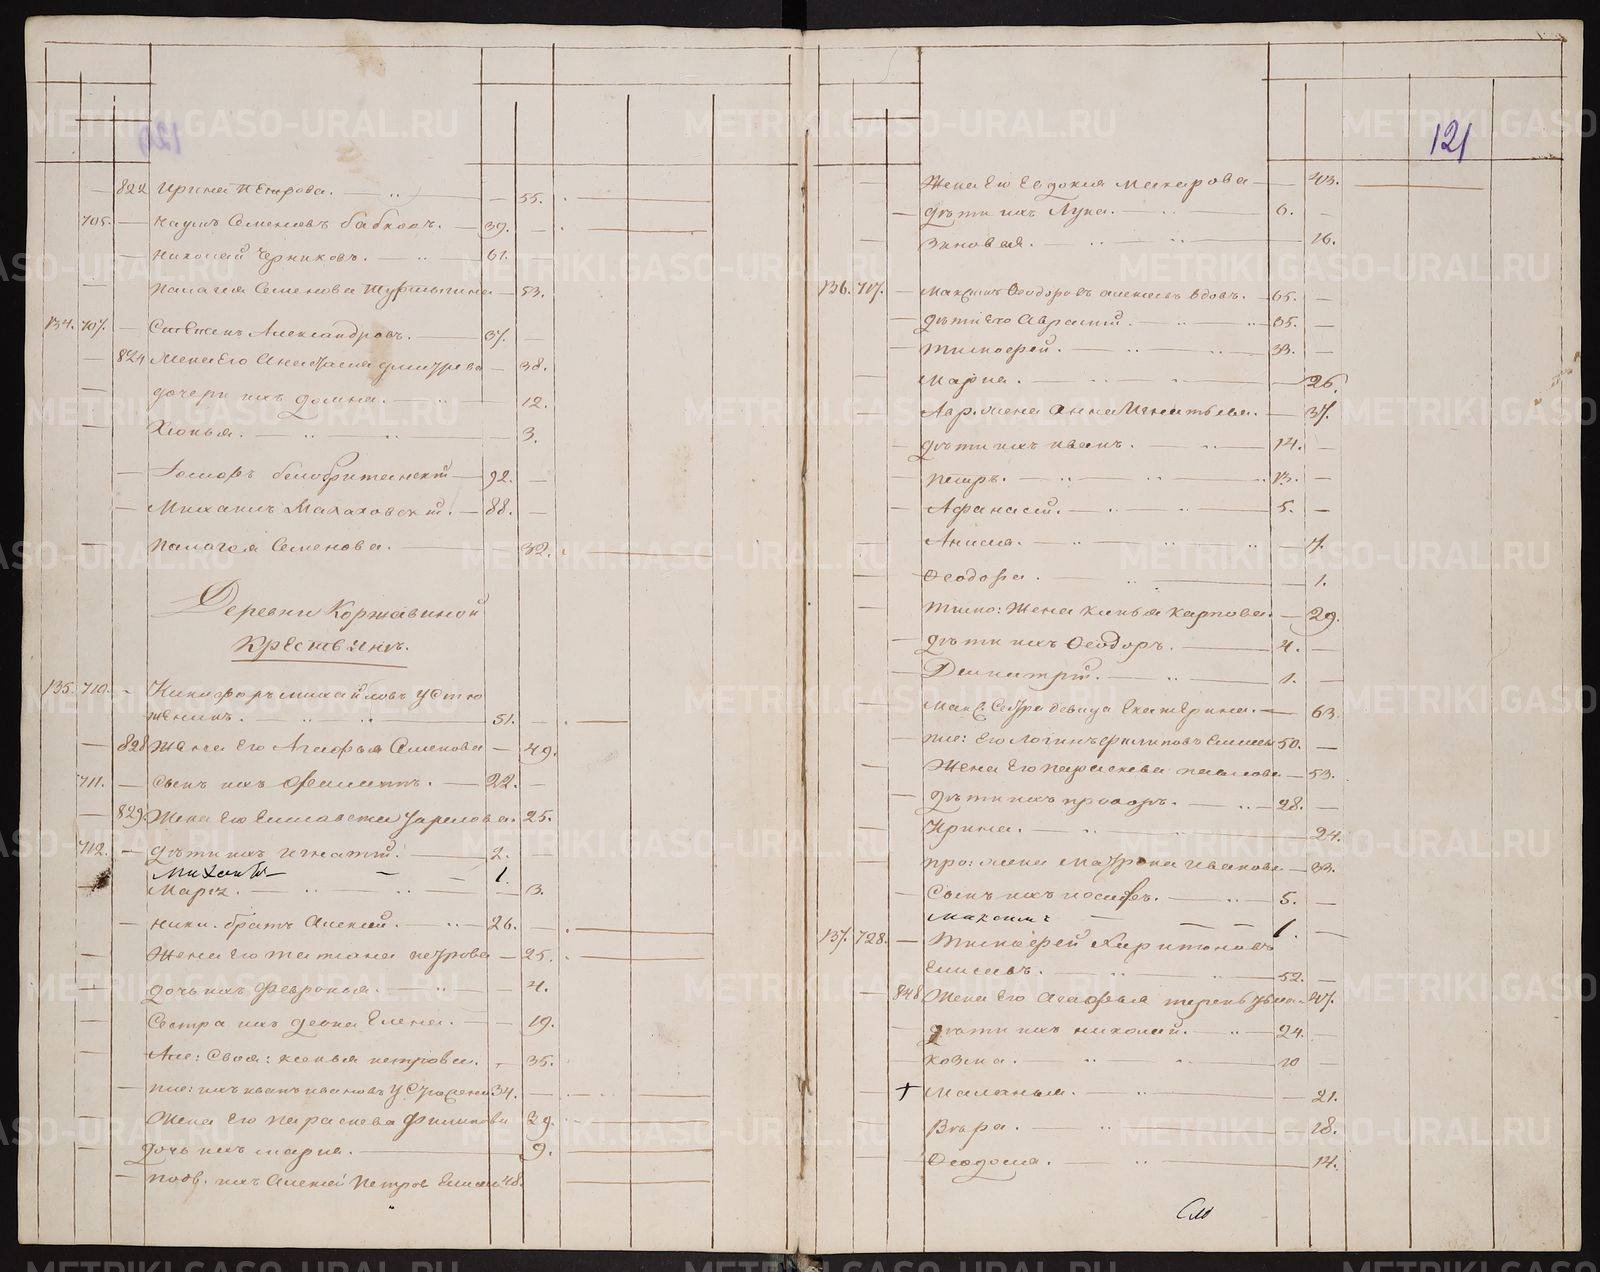 121
822 Ирина Петрова. — 55.
705. — Наумъ Семеновъ Бабкооъ. — 39. —
— Николай Черниковъ. — 61. —
— Палагея Семенова — 53.
134. 707. — Степанъ Александровъ. — 37. —
— 824 Жена Его Анастасия Дмитрева — 38.
— дочери ихъ Домна. — 12.
— Хіонья. — 3.
— 92. —
— Михаилъ Малаховскій. — 88. —
— Палагея Семенова. — 32.
Деревни Коржавиной
Крестьянъ.
135. 710. — Никифоръ Михайловъ Устю
жёнинъ. — 51. —
— 828 Жена Его Агафья Семенова — 49.
711. — Сынъ ихъ — 22. —
— 829. Жена Его Елисавета — 25.
712. — дѣти ихъ Игнатій. — 2. —
Михаилъ — 1.
— Марѳа — 3.
— Ники. братъ Алексѣй. — 26. —
— Жена Его Татіана Петрова — 25.
— дочь ихъ Февронья. — 4.
— Сестра ихъ девка Елена. — 19.
— Але: Своя: Ксенья Петрова. — 35.
— пле: ихъ Иванъ Ивановъ 34. —
— Жена Его Параскева Филипова 39.
— дочь ихъ Марія. — 9.
— ихъ Алексѣй Петровъ 48.
— Жена Его Евдокия Макарова — 43.
— дѣти ихъ Лука. — 6. —
— Зиновея. — 16.
136. 717. — Максимъ Ѳеодоровъ вдовъ. — 65. —
— дѣти Его Авраамій. — 35. —
— Тимоѳей. — 33. —
— Марѳа. — 26.
— Авр. жена Анна Игнатьева. — 37.
— дѣти ихъ Иванъ. — 14. —
— Петръ. — 13. —
— Афанасій. — 5. —
— Анисья. — 7.
— Ѳеодора. — 1.
— Тимо: Жена Карпова. — 29.
— дѣти ихъ Ѳеодоръ. — 4. —
— Димитрій. — 1. —
— Макс. Сестра девица Екатерина. — 63.
— пле: Его Логинъ Филиповъ 50. —
— Жена Его Параскева Павлова — 53.
— дѣти ихъ Прохоръ. — 28. —
— Ирина. — 24.
— Про: жена Матрона Иванова — 33.
— Сынъ ихъ Іосифъ. — 5. —
Максимъ — 1. —
137. 728. — Тимоѳей Харитоновъ
Елисѣевъ. — 52. —
— 848 Жена Его Агафья Терентьева — 47.
— дѣти ихъ Николай. — 24. —
— Козма. — 10 —
+ Маланья. — 21.
— Вѣра. — 18.
— Ѳеодосия. — 14.